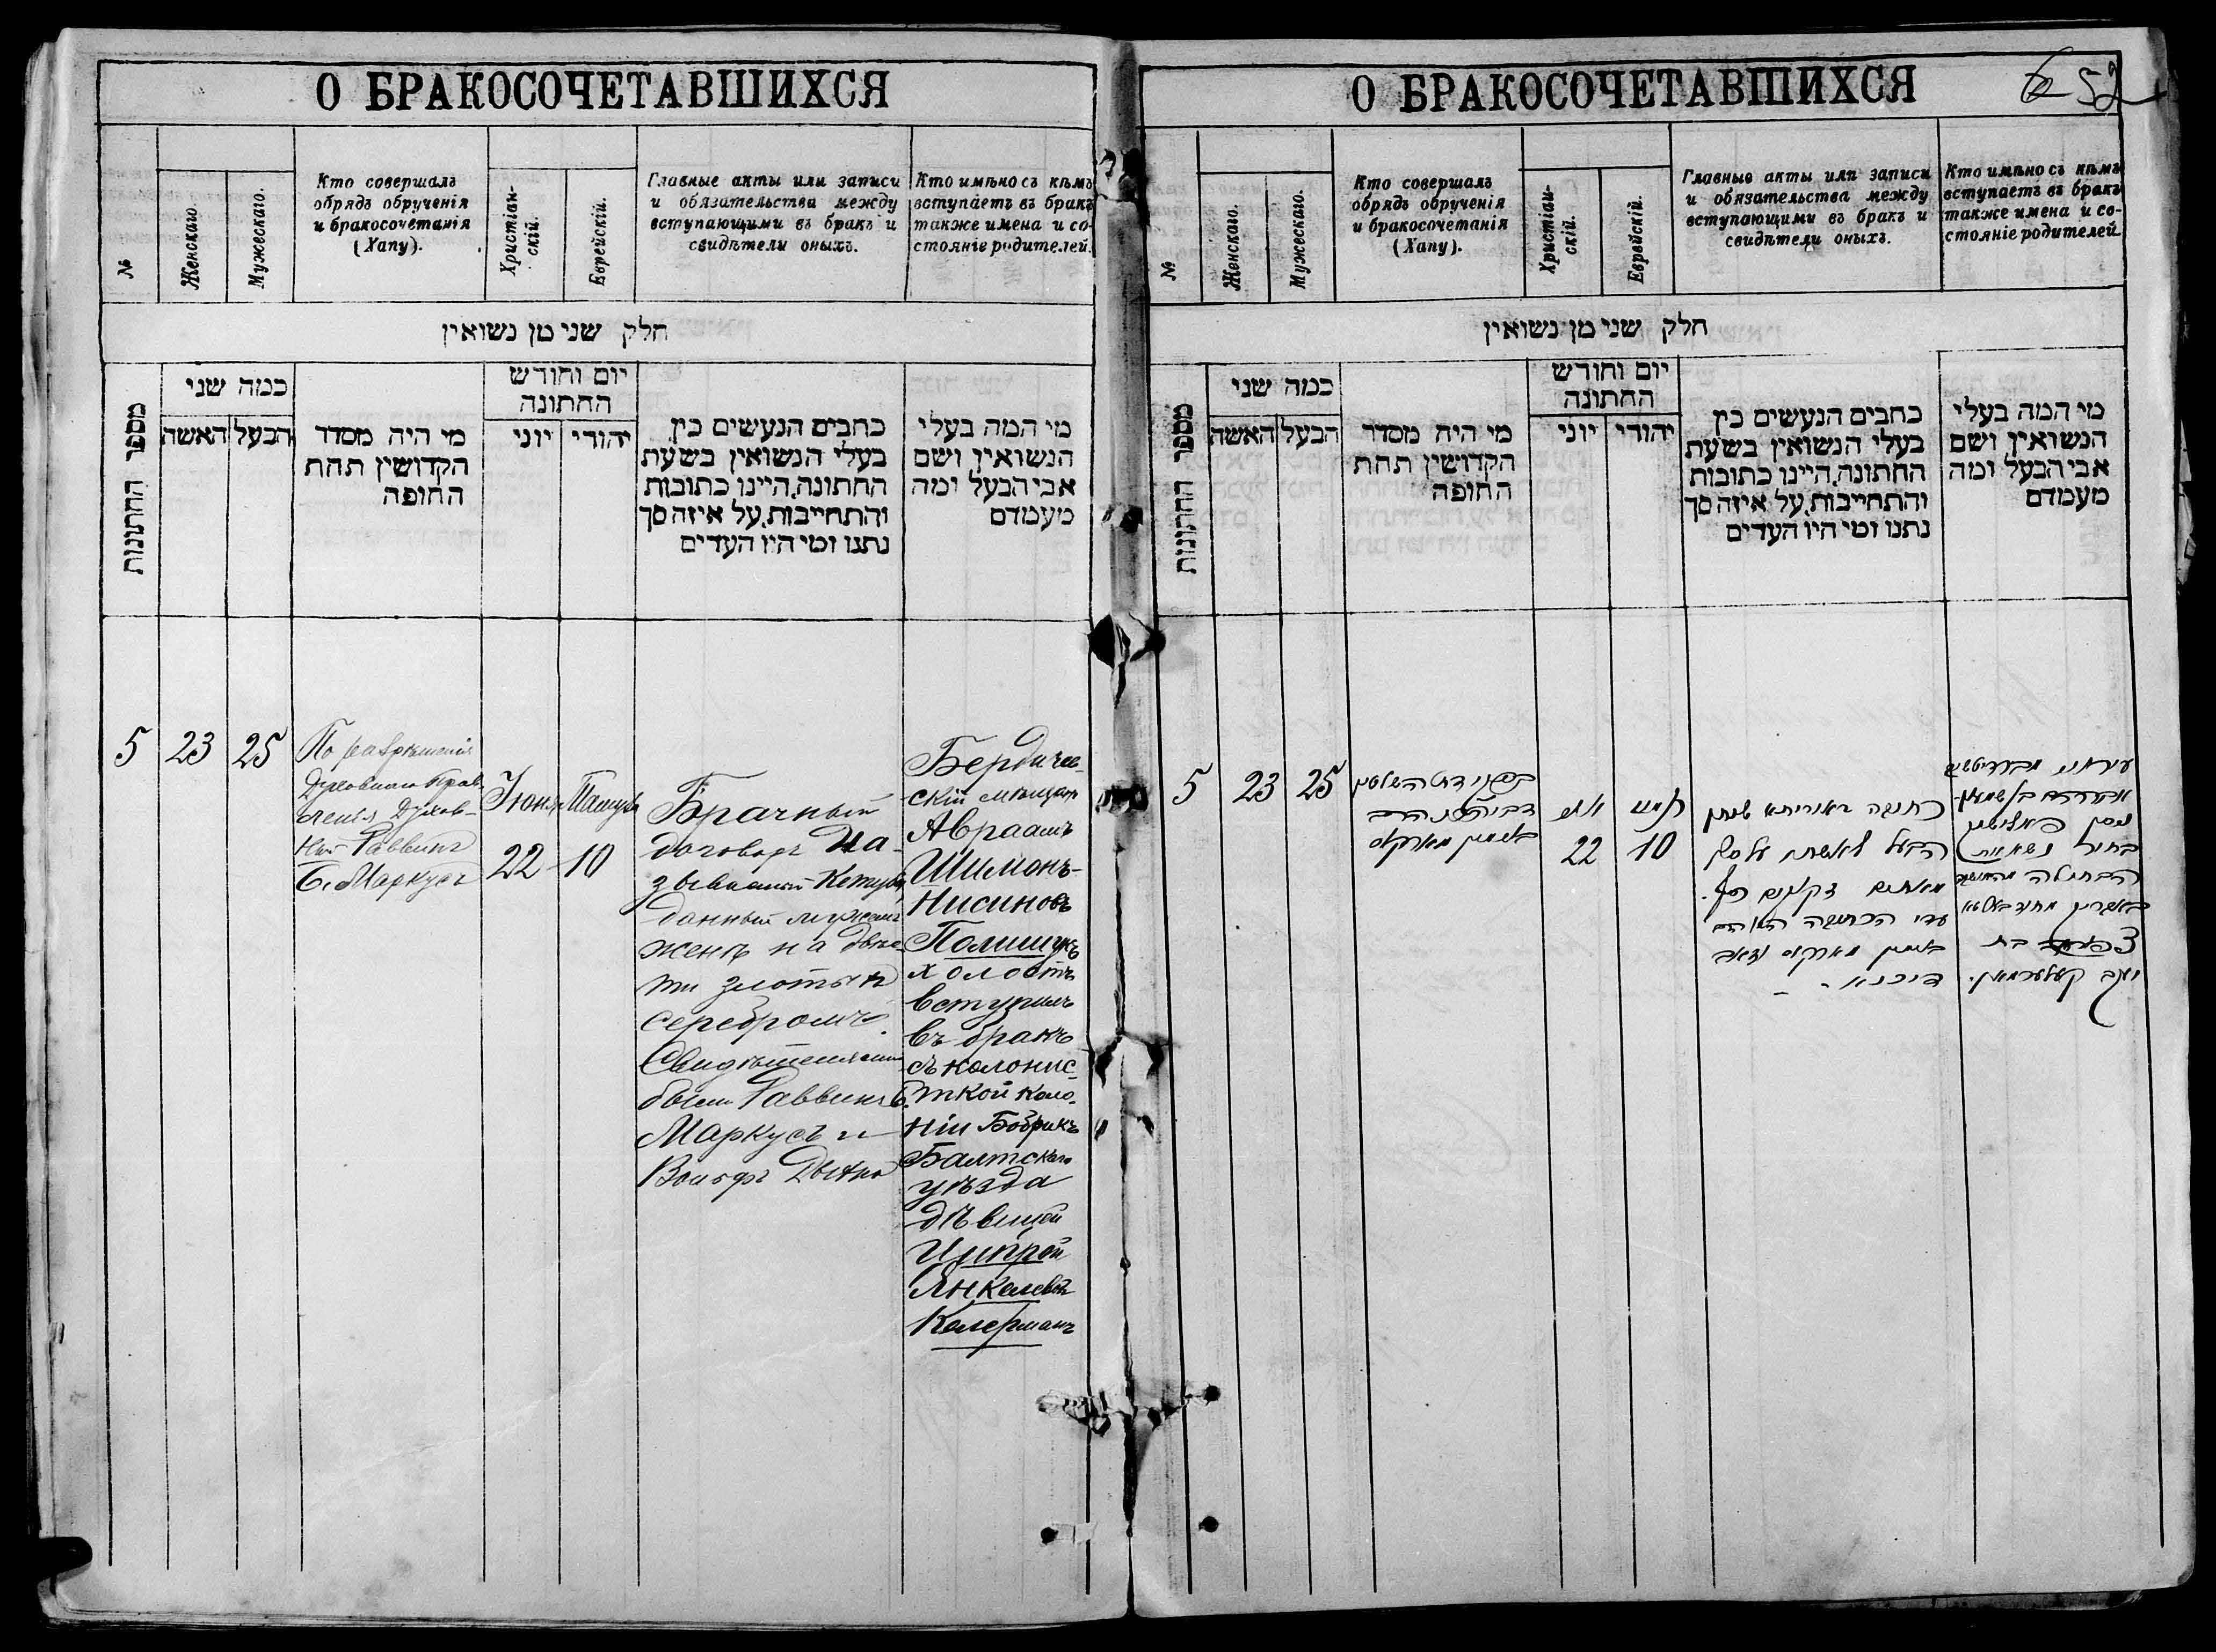 О БРАКОСОЧЕТАВШИХСЯ
№
Женскаго.
Мужескаго.
Кто совершалъ
обрядъ обрученія
и бракосочетанія
(Хапу).
Христіан-
скій.
Еврейскій.
Главные акты или записи
и обязательства между
вступающими въ бракъ и
свидѣтели оныхъ.
Кто имѣно съ кѣмъ
вступаетъ въ бракъ
также имена и со-
стояніе родителей.
חלק שני מן נשואין
מספר החתונות
כמה שני
האשה
הבעל
מי היה מסדר
הקדושין תחת
החופה
יום וחודש
החתונה
יוני
יהודי
כתבים הנעשים בין
בעלי הנשואין בשעת
החתונה, היינו כתובות
והתחייבות, על איזה סך
נתנו ומי היו העדים
מי המה בעלי
הנשואין ושם
אבי הבעל ומה
מעמדם
5
23
25
По разрѣшенія
Духовнаго Прав-
ленія Духов-
ный Раввинъ
Б. Маркусъ
Іюня
22
Тамузъ
10
Брачный
договоръ На-
зываемый Кетуба,
данный мужемъ
женѣ на двѣс-
ти злотыхъ
серебромъ.
Свидѣтелями
были Раввинъ Б.
Маркусъ и
Вольфъ
Бердичев-
скій мѣщан
Авраамъ
Шимонъ-
Нисиновъ
Полищукъ
холостъ
вступилъ
въ бракъ
съ колонис-
ткой коло-
ніи Бобрикъ
Балтскаго
уѣзда
дѣвицей
Ципрой
Янкелевой
Келерманъ
О БРАКОСОЧЕТАВШИХСЯ
6 52
№
Женскаго.
Мужескаго.
Кто совершалъ
обрядъ обрученія
и бракосочетанія
(Хапу).
Христіан-
скій.
Еврейскій.
Главные акты или записи
и обязательства между
вступающими въ бракъ и
свидѣтели оныхъ.
Кто имѣно съ кѣмъ
вступаетъ въ бракъ
также имена и со-
стояніе родителей.
חלק שני מן נשואין
מספר החתונות
כמה שני
האשה
הבעל
מי היה מסדר
הקדושין תחת
החופה
יום וחודש
החתונה
יוני
יהודי
כתבים הנעשים בין
בעלי הנשואין בשעת
החתונה, היינו כתובות
והתחייבות, על איזה סך
נתנו ומי היו העדים
מי המה בעלי
הנשואין ושם
אבי הבעל ומה
מעמדם
5
23
25
הרב
מארקוס
יוני
22
תמוז
10
כתובה דאורייתא שנתן
הבעל לאשתו על סך
מאתים זקוקים כסף.
עדי הכתובה הרב
מארקוס וזאב
עירוני מברדיטשוב
אברהם שמעון
ניסן פאלישוק
בחור נשא את
הבתולה
בת
יעקב קעלערמאן.